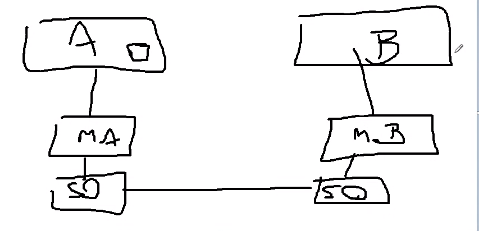 A
B
MA
M.B
SO
SO